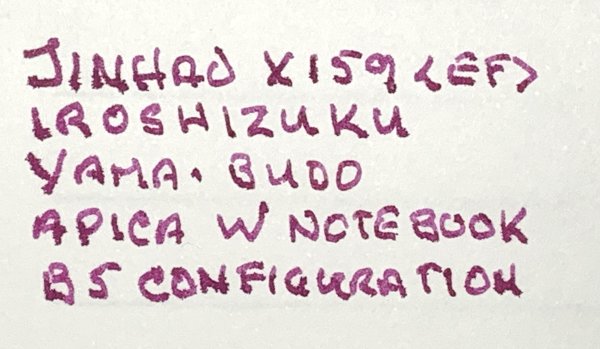 JINHAO X159 <EF>
IROSHIZUKU
YAMA· BUDO
APICA W NOTEBOOK
B5 CONFIGURATION